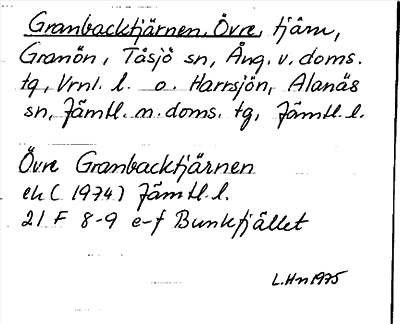 Granbacktjärnen, Övre, tjärn,
Granön, Tåsjö sn, Ång. v. doms.
tg, Vrnl. l. o. Harrsjön, Alanäs
sn, Jämtl. n. doms. tg, Jämtl. l.
Övre Granbacktjärnen
ek ( 1974) Jämtl. l.
21 F 8-9 e-f Bunkfjället
L. Hn 1975